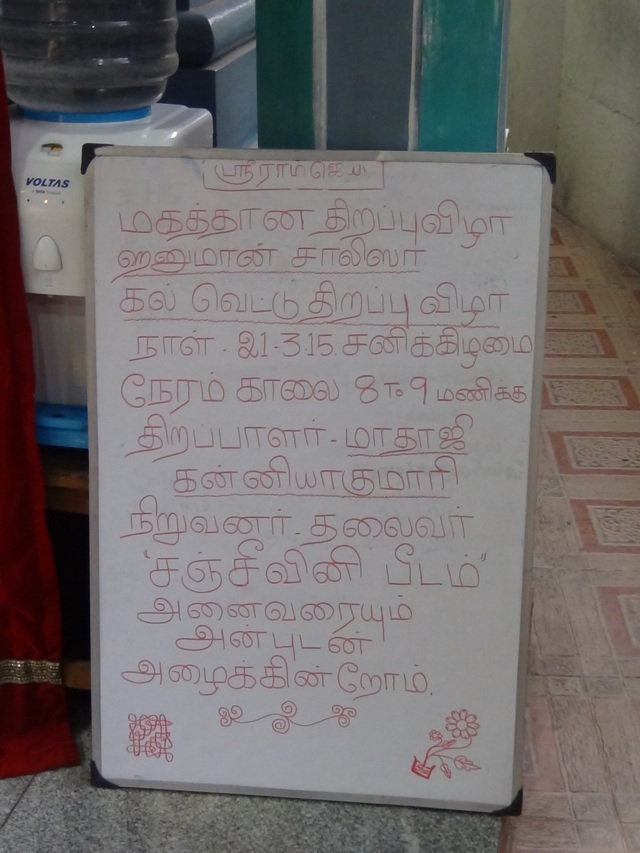 VOLTAS
ஸ்ரீராம்ஜெயம்
மகத்தான திறப்புவிழா
ஹனுமான் சாலிஸா
கல் வெட்டு திறப்பு விழா
நாள் - 21-3-15. சனிக்கிழமை
நேரம் காலை 8 To 9 மணிக்கு
திறப்பாளர் - மாதாஜி
கன்னியாகுமாரி
நிறுவனர் - தலைவர்
"சஞ்சீவினி பீடம்"
அனைவரையும்
அன்புடன்
அழைக்கின்றோம்.